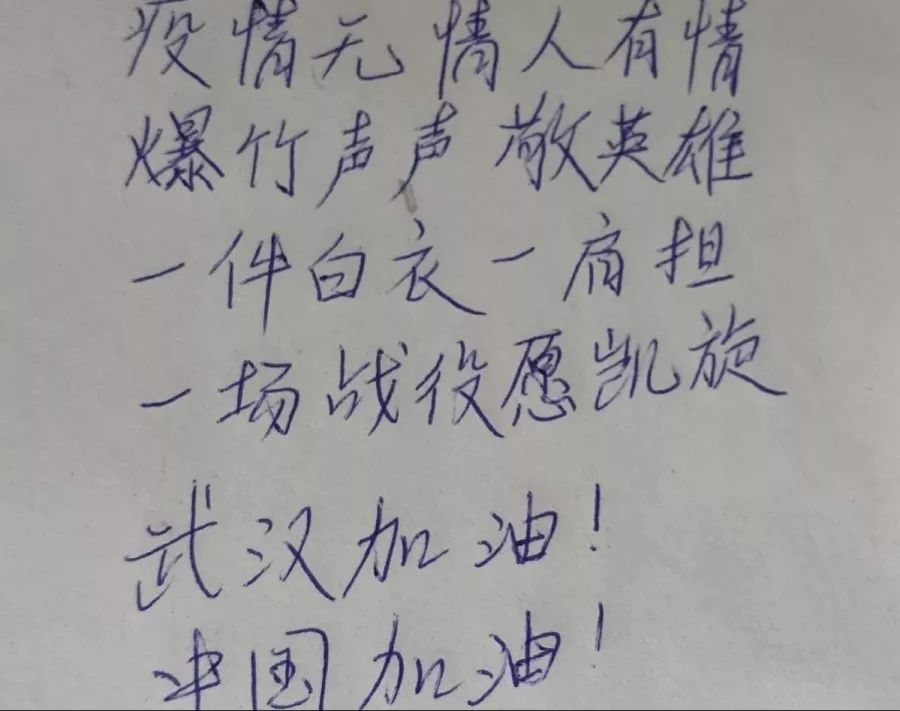 疫情无情人有情
爆竹声声敬英雄
一件白衣一肩担
一场战役愿凯旋
武汉加油!
中国加油!